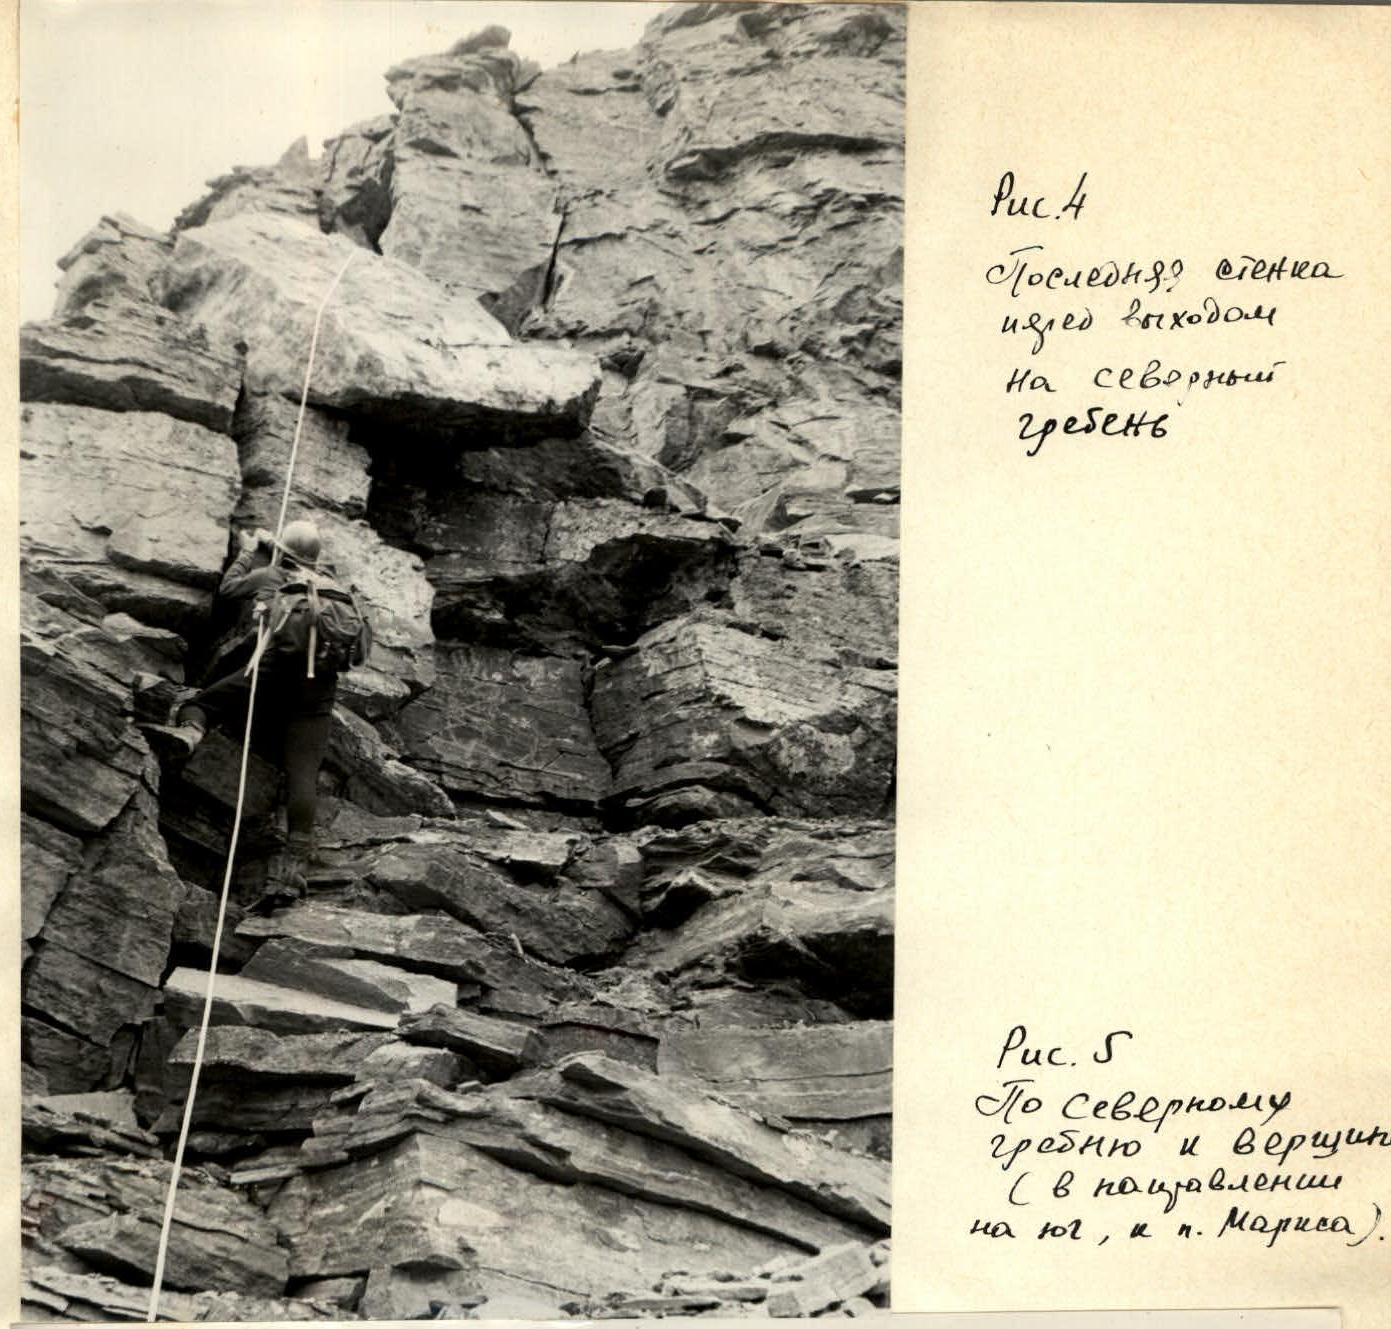 Рис. 4
Последняя стенка
перед выходом
на северный
гребень
Рис. 5
По северному
гребню к вершин
(в направлении
на юг, к п. Маркса).